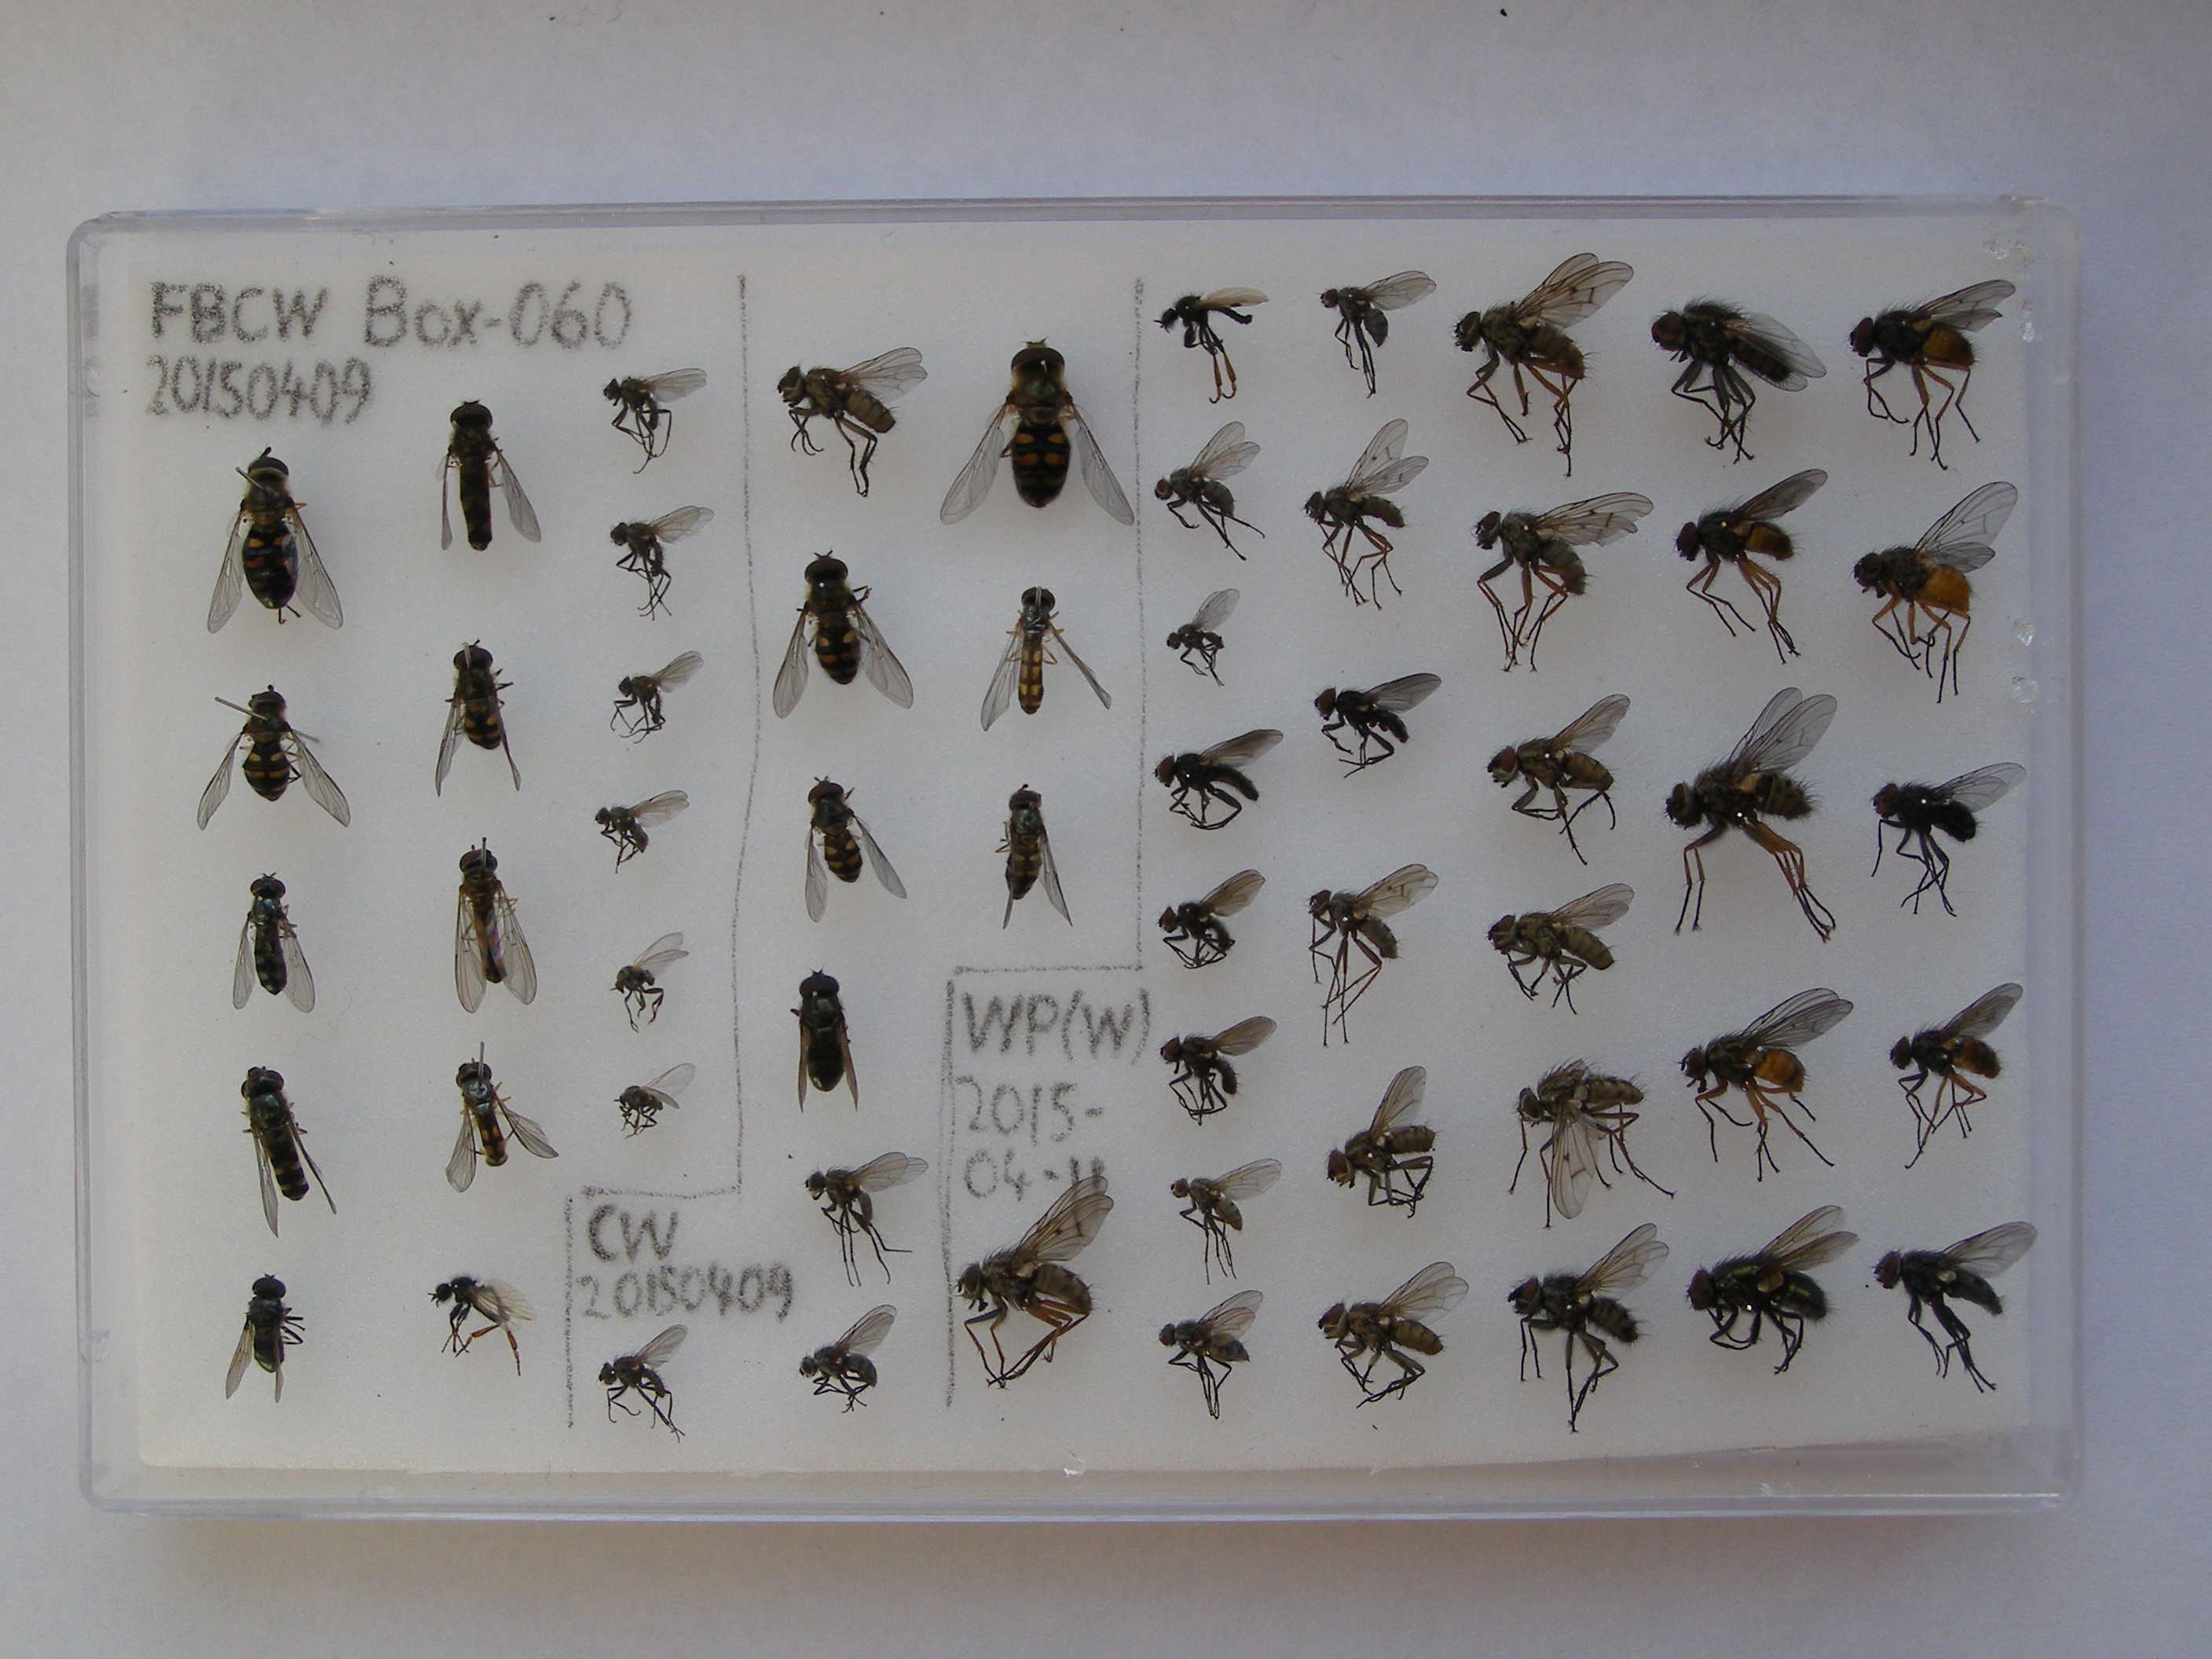 FBCW Box-060
20150409
CW
20150409
WP(W)
2015-
04-11